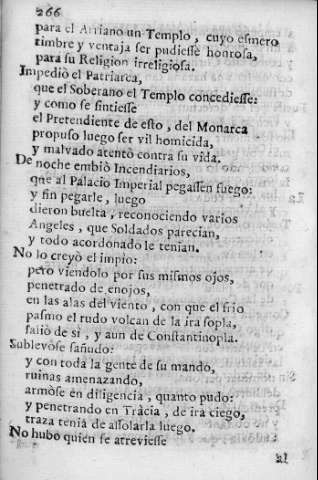 266
para el Arriano un Templo, cuyo esmero
timbre y ventaja ser pudiesse honrosa,
para su Religion irreligiosa.
Impediò el Patriarca,
que el Soberano el Templo concediesse:
y como se sintiesse
el Pretendiente de esto, del Monarca
propuso luego ser vil homicida,
y malvado atentò contra su vida.
De noche embiò Incendiarios,
que al Palacio Imperial pegassen fuego:
y fin pegarle, luego
dieron buelta, reconociendo varios
Angeles, que Soldados parecian,
y todo acordonado le tenian.
No lo creyò el impio:
pero viendolo por sus mismos ojos,
penetrado de enojos,
en las alas del viento, con que el frio
pasmo el rudo volcan de la ira sopla,
saliò de sì, y aun de Constantinopla.
Sublevòse sañudo:
y con toda la gente de su mando,
ruinas amenazando,
armòse en diligencia, quanto pudo:
y penetrando en Tracia, de ira ciego,
traza tenia de assolarla luego.
No hubo quien se atreviesse
al